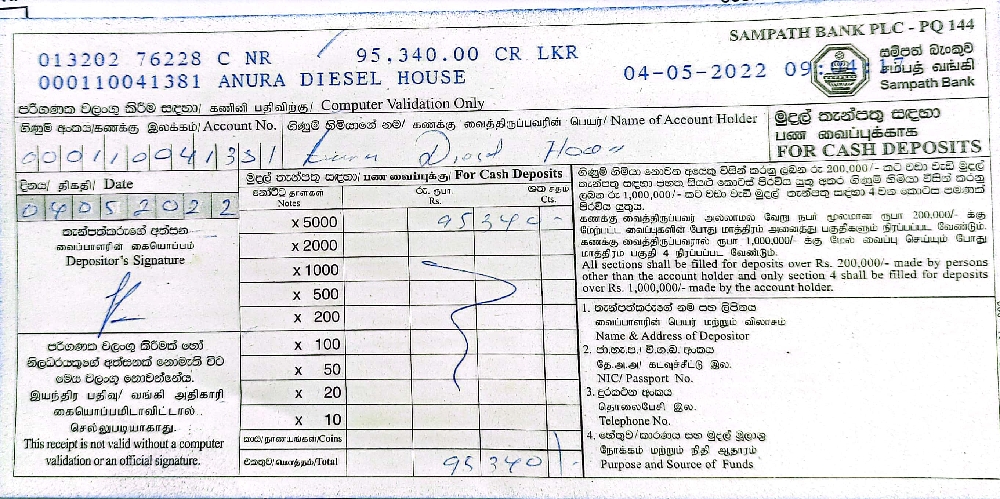 SAMPATH BANK PLC - PQ 144
013202 76228 C NR 95,340.00 CR LKR
000110041381 ANURA DIESEL HOUSE
04-05-2022 09:
සම්පත් බැංකුව
சம்பத் வங்கி
Sampath Bank
පරිගණක වලංගු කිරීම සඳහා/ கணினி பதிவிற்கு/ Computer Validation Only
ගිණුම් අංකය/கணக்கு இலக்கம்/ Account No. ගිණුම් හිමියාගේ නම/ கணக்கு வைத்திருப்பவரின் பெயர்/ Name of Account Holder
000110041381 Anura Diesel House
මුදල් තැන්පතු සඳහා
பண வைப்புக்காக
FOR CASH DEPOSITS
දිනය/ திகதி/ Date
04052022
තැන්පත්කරුගේ අත්සන
வைப்பாளரின் கையொப்பம்
Depositor's Signature
පරිගණක වලංගු කිරීමක් හෝ
නිලධරයකුගේ අත්සනක් නොමැති විට
මෙය වලංගු නොවන්නේය.
இயந்திர பதிவு/ வங்கி அதிகாரி
கையொப்பமிடாவிட்டால்
செல்லுபடியாகாது.
This receipt is not valid without a computer
validation or an official signature.
මුදල් තැන්පතු සඳහා/ பண வைப்புக்கு/ For Cash Deposits
නෝට්ටු தாள்கள் රු. ரூபா. ශත சதம்
Notes Rs. Cts.
x 5000 95340 -
x 2000
x 1000
x 500
x 200
x 100
x 50
x 20
x 10
කාසි/நாணயங்கள்/Coins
එකතුව/மொத்தம்/Total 95340 -
ගිණුම් හිමියා නොවන අයෙකු විසින් කරනු ලබන රු 200,000/- කට වඩා වැඩි මුදල්
තැන්පතු සඳහා පහත සියළු කොටස් පිරවිය යුතු අතර ගිණුම් හිමියා විසින් කරනු
ලබන රු 1,000,000/- කට වඩා වැඩි මුදල් තැන්පතු සඳහා 4 වන කොටස පමණක්
පිරවිය යුතුය.
கணக்கு வைத்திருப்பவர் அல்லாமல் வேறு நபர் மூலமான ரூபா 200,000/- க்கு
மேற்பட்ட வைப்புகளின் போது மாத்திரம் அனைத்து பகுதிகளும் நிரப்பப்பட வேண்டும்.
கணக்கு வைத்திருப்பவரால் ரூபா 1,000,000/- க்கு மேல் வைப்பு செய்யும் போது
மாத்திரம் பகுதி 4 நிரப்பப்பட வேண்டும்.
All sections shall be filled for deposits over Rs. 200,000/- made by persons
other than the account holder and only section 4 shall be filled for deposits
over Rs. 1,000,000/- made by the account holder.
1. තැන්පත්කරුගේ නම සහ ලිපිනය
வைப்பாளரின் பெயர் மற்றும் விலாசம்
Name & Address of Depositor
2. ජා.හැ.ප./ වි.ග.බ. අංකය
தே.அ.அ/ கடவுச்சீட்டு இல.
NIC/ Passport No.
3. දුරකථන අංකය
தொலைபேசி இல.
Telephone No.
4. හේතුව/කාරණය සහ මුදල් මූලාශ්‍ර
நோக்கம் மற்றும் நிதி ஆதாரம்
Purpose and Source of Funds